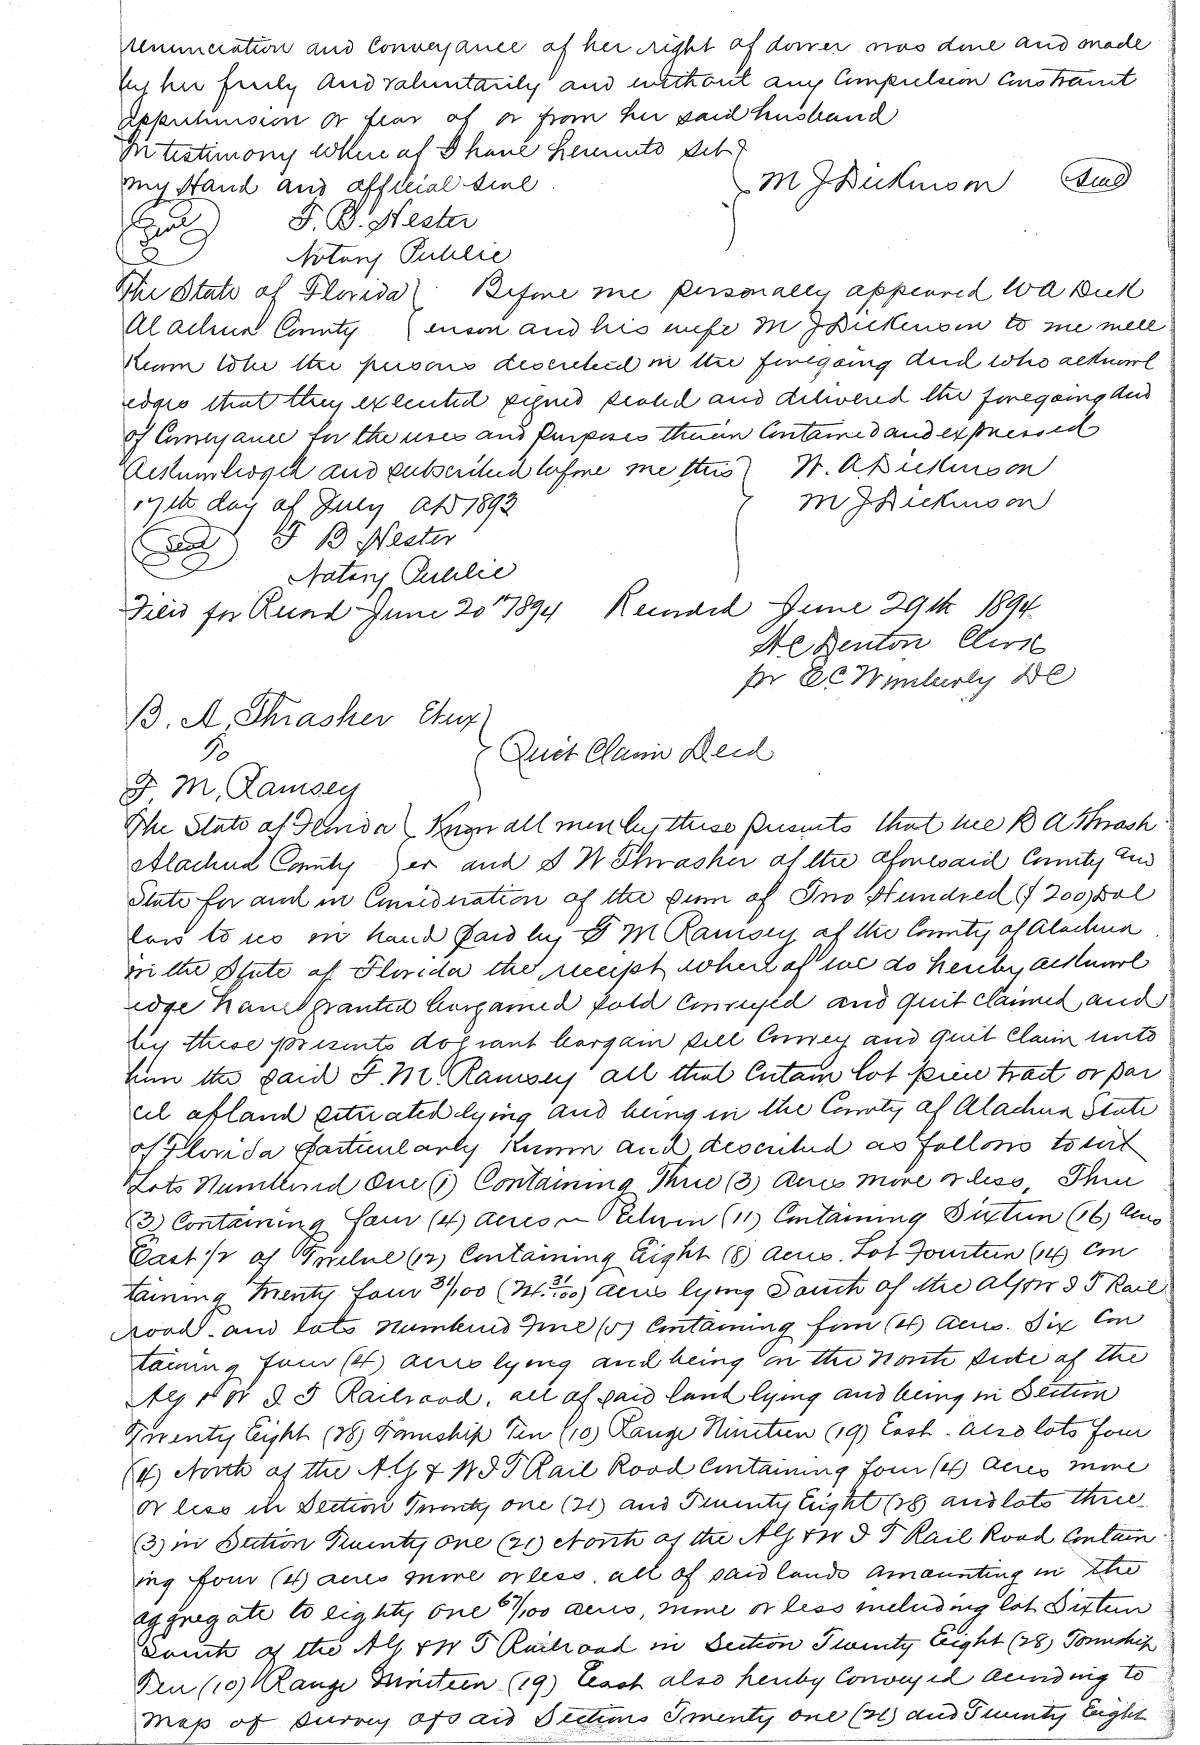 renunciation and Conveyance of her right of dower was done and made
by her freely And voluntarily and without any Compulsion Constraint
apprehension or fear of or from her said husband
In testimony where of I have hereunto set
my Hand and official Seal
M J Dickinson Seal
Seal T. B. Nester
Notary Public
The State of Florida Before me personally appeared W A Dick
Alachua County enson and his wife M J Dickinson to me well
Known to be the persons described in the foregoing deed who acknowl
edges that they executed signed sealed and delivered the foregoing deed
of Conveyance for the uses and Purposes therein Contained and expressed
Acknowledged and subscribed before me this W. A Dickinson
17th day of July AD 1893 M J Dickinson
Seal T B Nester
Notary Public
Filed for Record June 20th 1894 Recorded June 29th 1894
H C Denton Clerk
pr E C Wimberly D C
B. A. Thrasher Etux
To
Quit Claim Deed
F. M. Ramsey
The State of Florida Know all men by these Presents that we B A Thrash
Alachua County er and S W Thrasher of the aforesaid County and
State for and in Consideration of the sum of Two Hundred ($200) Dol
lars to us in hand Paid by F M Ramsey of the County of Alachua
in the State of Florida the receipt where of we do hereby acknowl
edge have granted bargained sold Conveyed and quit claimed and
by these presents do grant bargain sell Convey and quit Claim unto
him the said F. M. Ramsey all that Certain lot piece tract or par
cel of land situated lying and being in the County of Alachua State
of Florida Particularly Known and described as follows to wit
Lots Numbered One (1) Containing Three (3) Acres more or less, Three
(3) Containing four (4) acres Eleven (11) Containing Sixteen (16) Acres
East 1/2 of Twelve (12) Containing Eight (8) acres. Lot Fourteen (14) Con
taining Twenty four 31/100 (24.31/100) acres lying South of the Alg & W I T Rail
road and lots Numbered Five (5) Containing four (4) acres. Six Con
taining four (4) acres lying and being on the North side of the
Alg & W I T Railroad, all of said land lying and being in Section
Twenty Eight (28) Township Ten (10) Range Nineteen (19) East. also lots four
(4) North of the A G & W I T Rail Road Containing four (4) acres more
or less in Section Twenty one (21) and Twenty Eight (28) and lots three
(3) in Section Twenty One (21) North of the A G & W I T Rail Road Contain
ing four (4) acres more or less. all of said lands amounting in the
aggregate to eighty one 67/100 acres, more or less including lot Sixteen
South of the A G & W T Railroad in Section Twenty Eight (28) Township
Ten (10) Range Nineteen (19) East also hereby Conveyed according to
Map of survey of said Sections Twenty one (21) and Twenty Eight